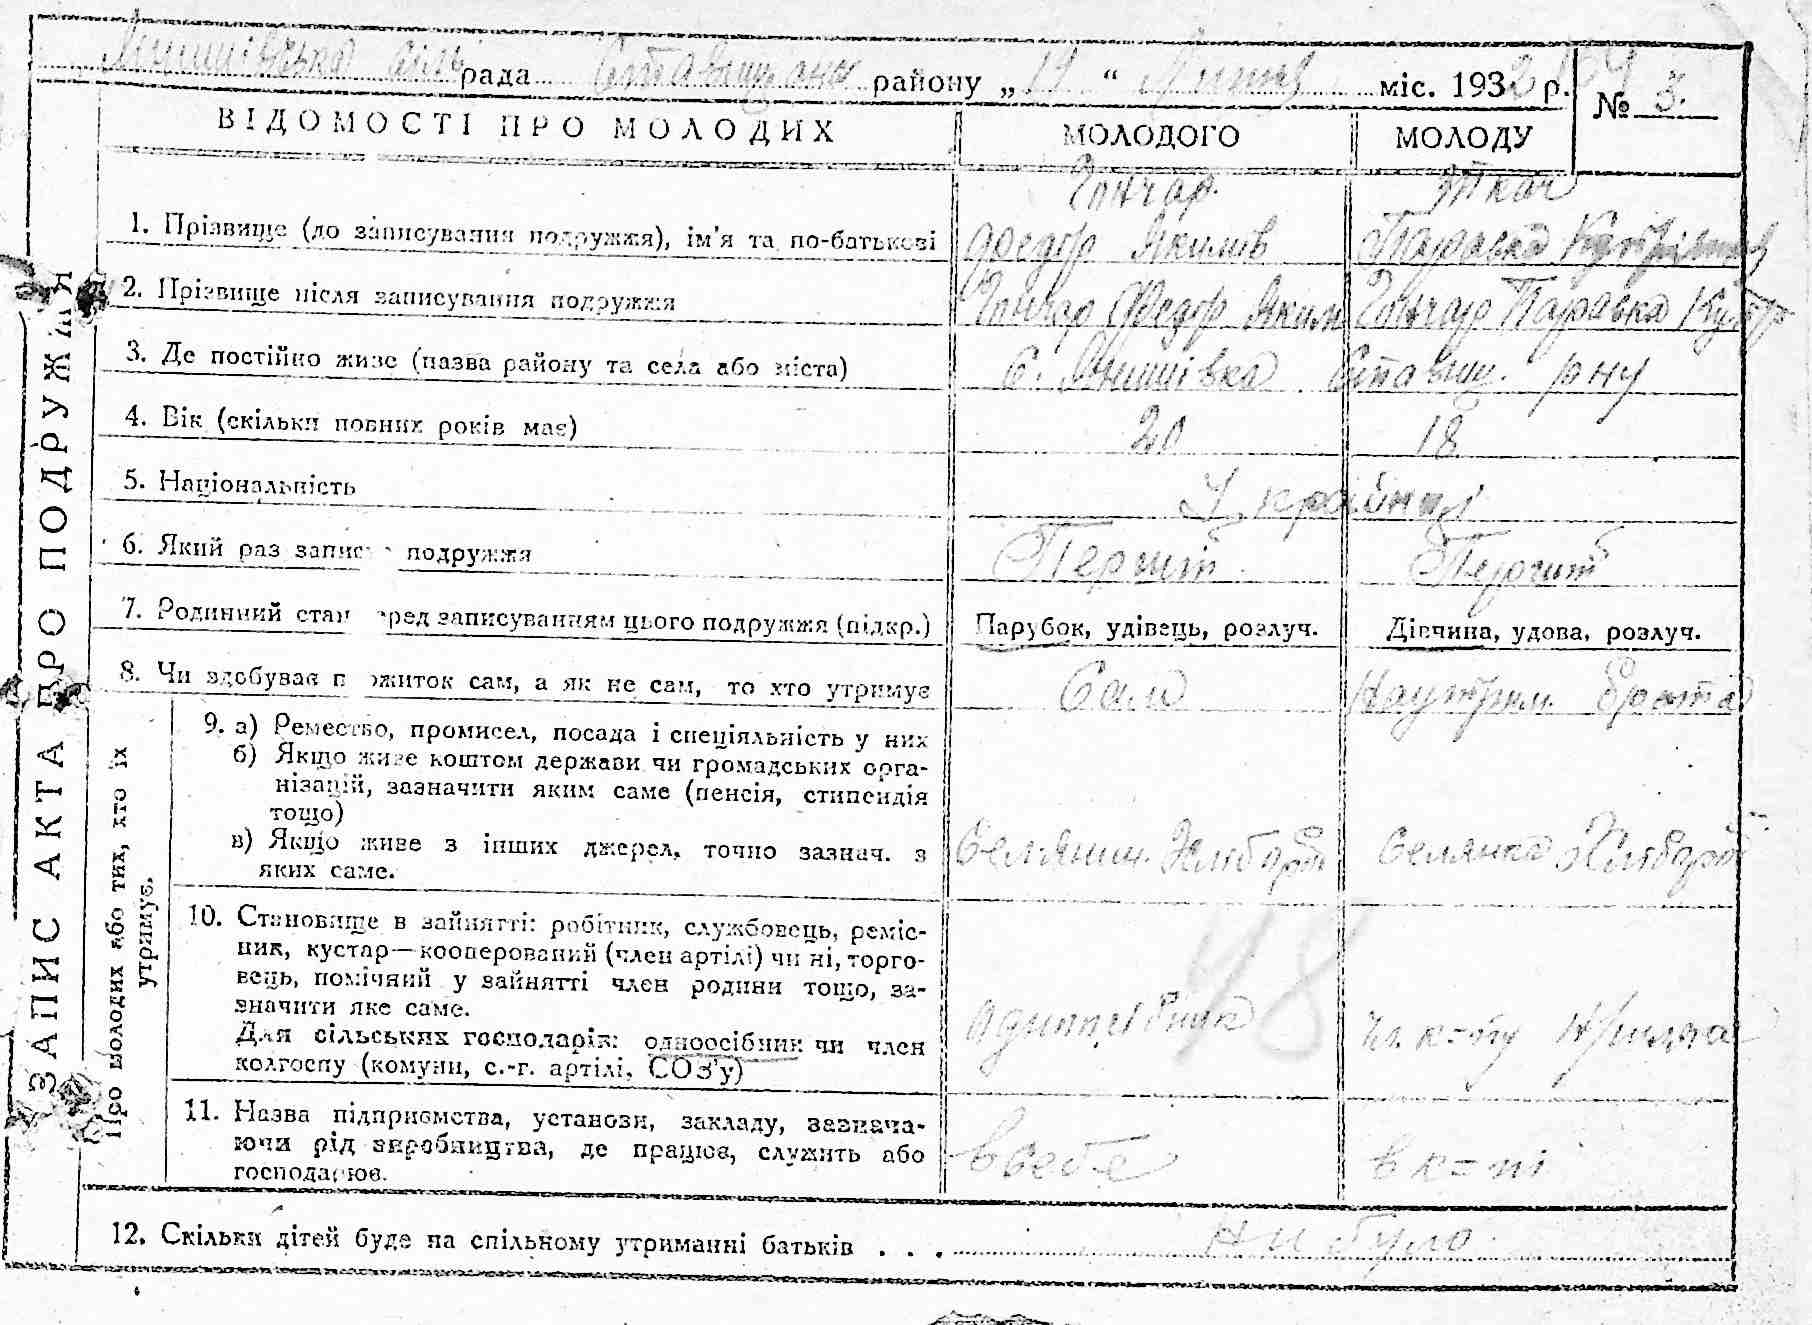 рада району „ 19 “ міс. 1932 р.
№ 3.
ЗАПИС АКТА ПРО ПОДРУЖЖЯ
ВІДОМОСТІ ПРО МОЛОДИХ МОЛОДОГО МОЛОДУ
Гончар Ткач
1. Прізвище (до записування подружжя), ім’я та по-батькові Федор Якимів Параска
2. Прізвище після записування подружжя Гончар Федор Яким Гончар Параска
3. Де постійно живе (назва району та села або міста) с. Янишівка Ставищ. рну
4. Вік (скільки повних років має) 20 18
5. Національність Українці
6. Який раз запис подружжя Перший Перший
7. Родинний стан перед записуванням цього подружжя (підкр.) Парубок, удівець, розлуч. Дівчина, удова, розлуч.
8. Чи здобуває прожиток сам, а як не сам, то хто утримує Сам На утрим. брата
Про молодих або тих, хто їх утримує.
9. а) Ремество, промисел, посада і спеціяльність у них
б) Якщо живе коштом держави чи громадських орга-
нізацій, зазначити яким саме (пенсія, стипендія
тощо)
в) Якщо живе з інших джерел, точно зазнач. з
яких саме.
Селянин Хлібороб Селянка Хлібороб
10. Становище в зайнятті: робітник, службовець, реміс-
ник, кустар—кооперований (член артілі) чи ні, торго-
вець, помічний у зайнятті член родини тощо, за-
значити яке саме.
Для сільських господарів: одноосібник чи член
колгоспу (комуни, с.-г. артілі, СОЗ’у)
48
чл. к=пу
11. Назва підприємства, установи, закладу, зазнача-
ючи рід виробництва, де працює, служить або
господарює.
в себе в к=пі
12. Скільки дітей буде на спільному утриманні батьків . . . ни було